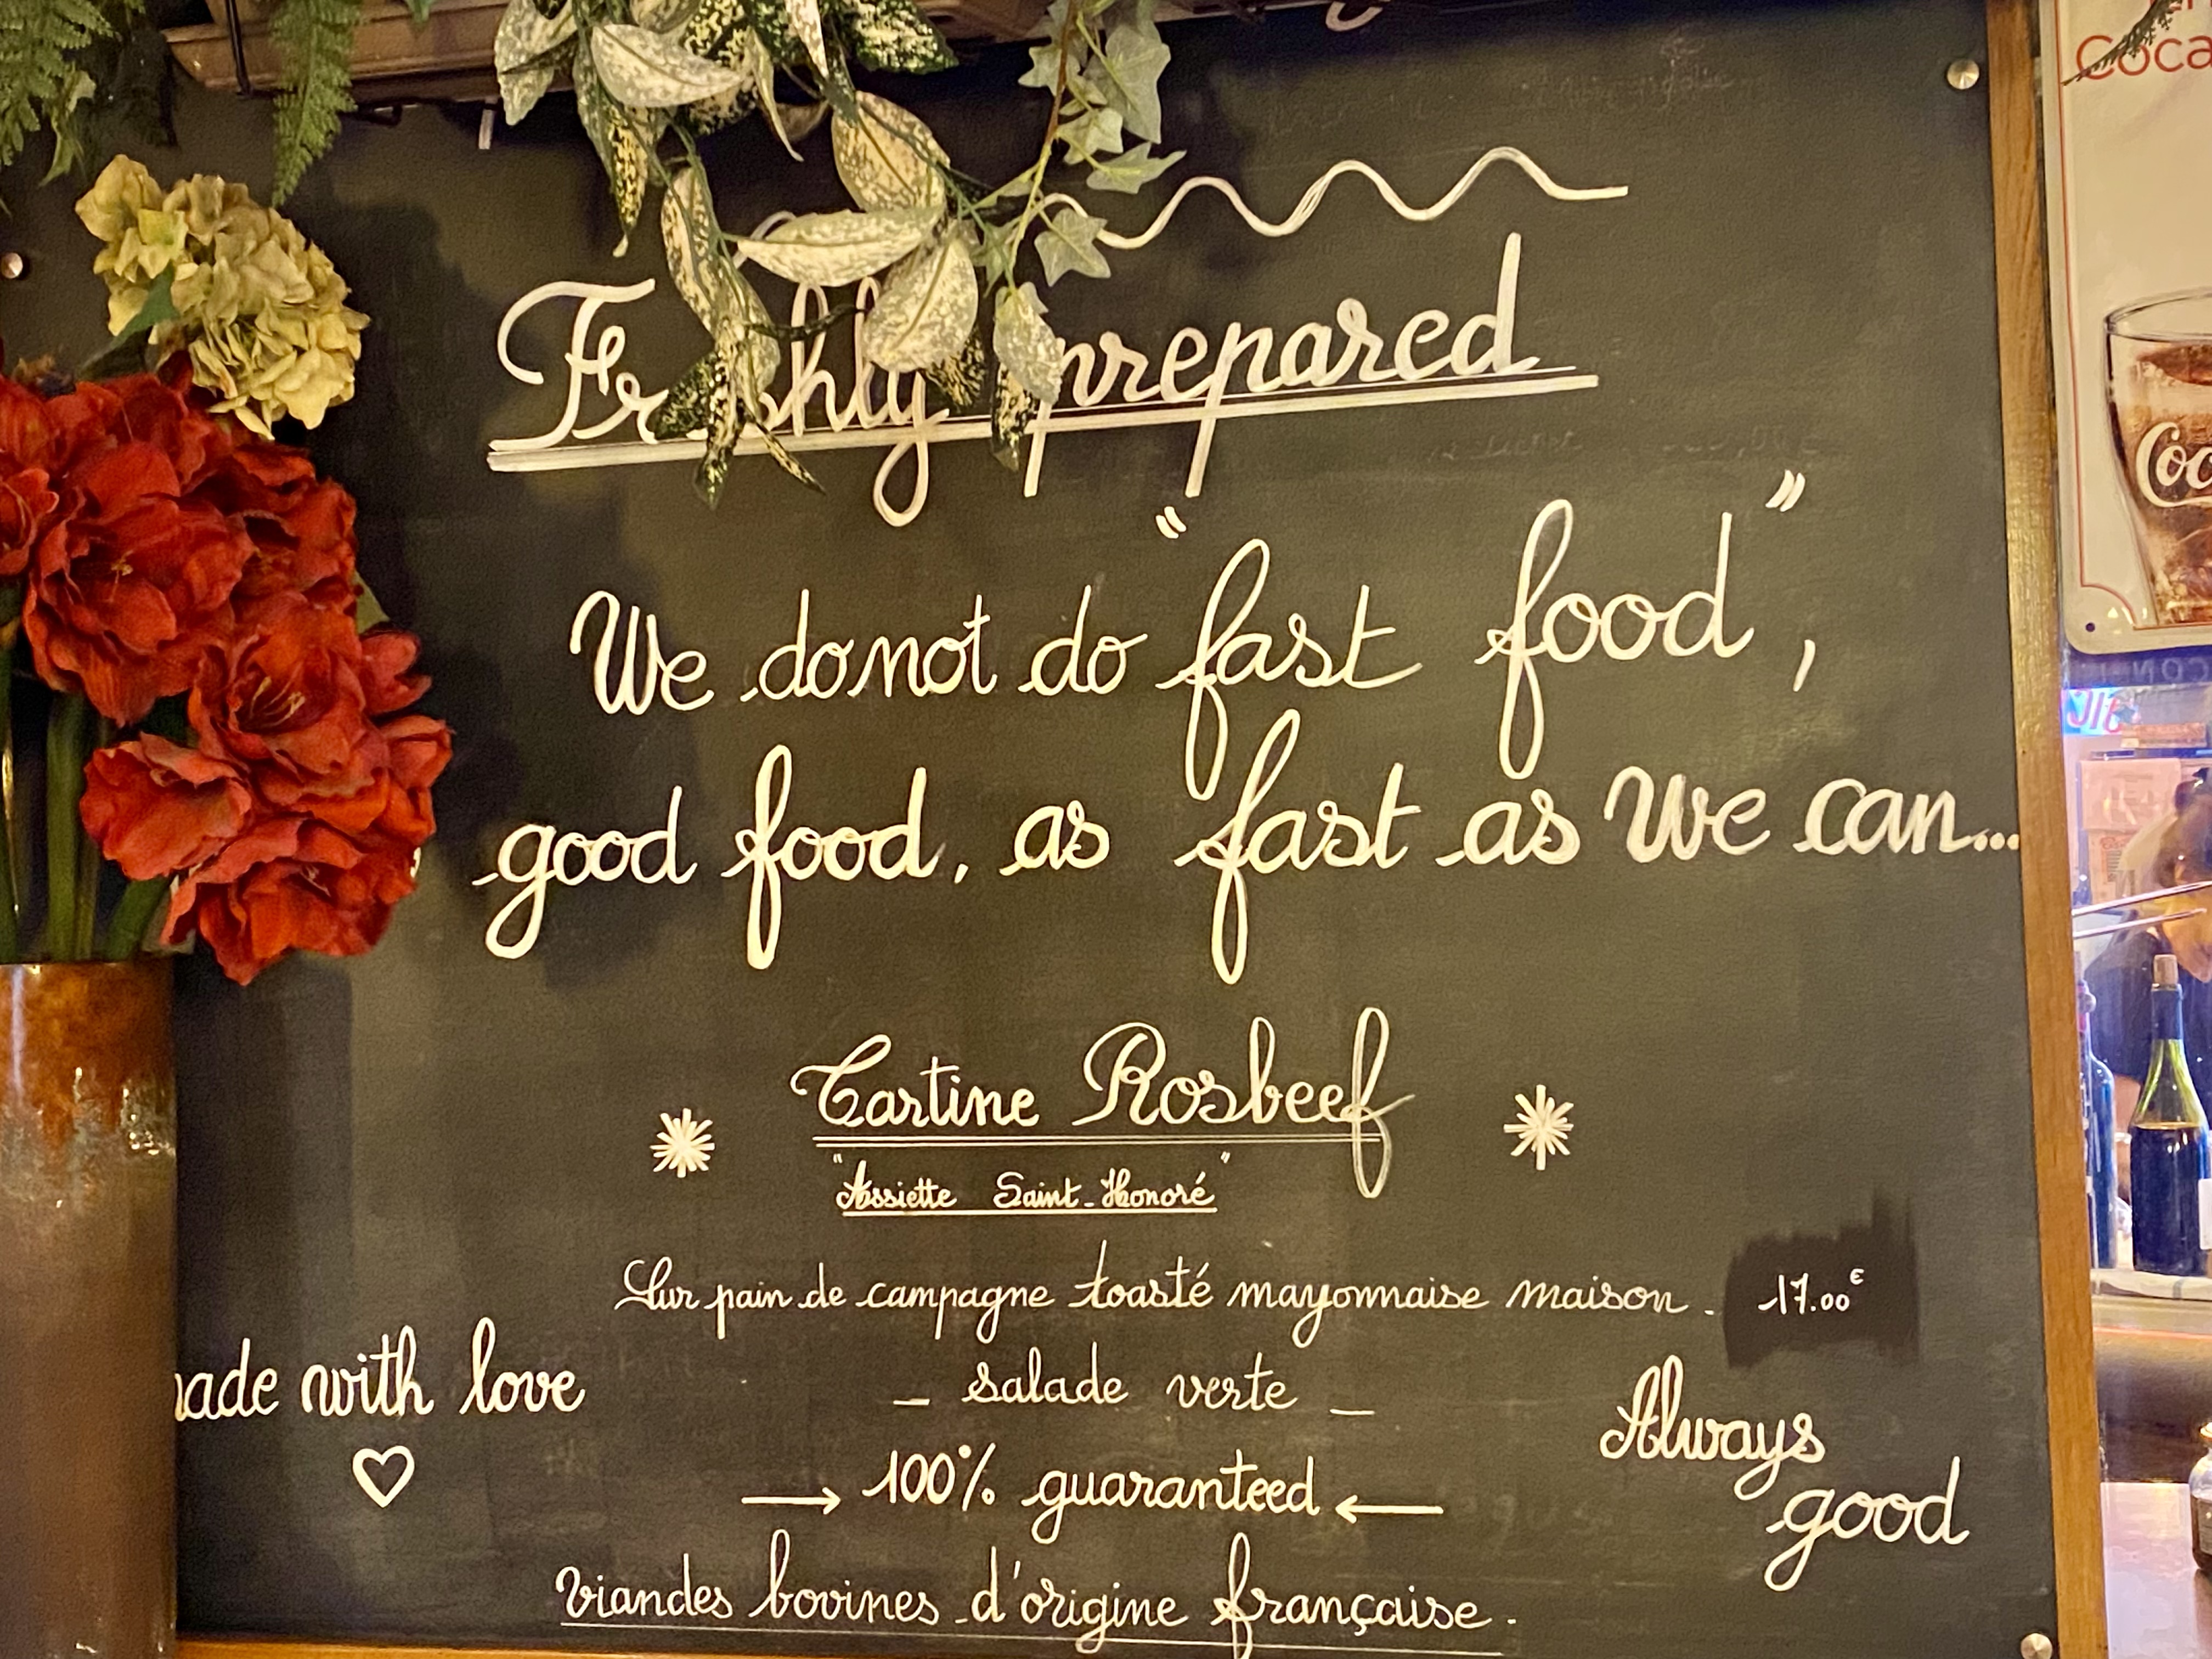 Coca
Freshly prepared
We do not do "fast food",
good food, as fast as We can...
Coc
Tartine Rosbeef
"Assiette Saint-Honoré"
Sur pain de campagne toasté mayonnaise maison. 17.00€
_ salade verte _
made with love
Always
good
→ 100% guaranteed ←
Viandes bovines d'origine française.